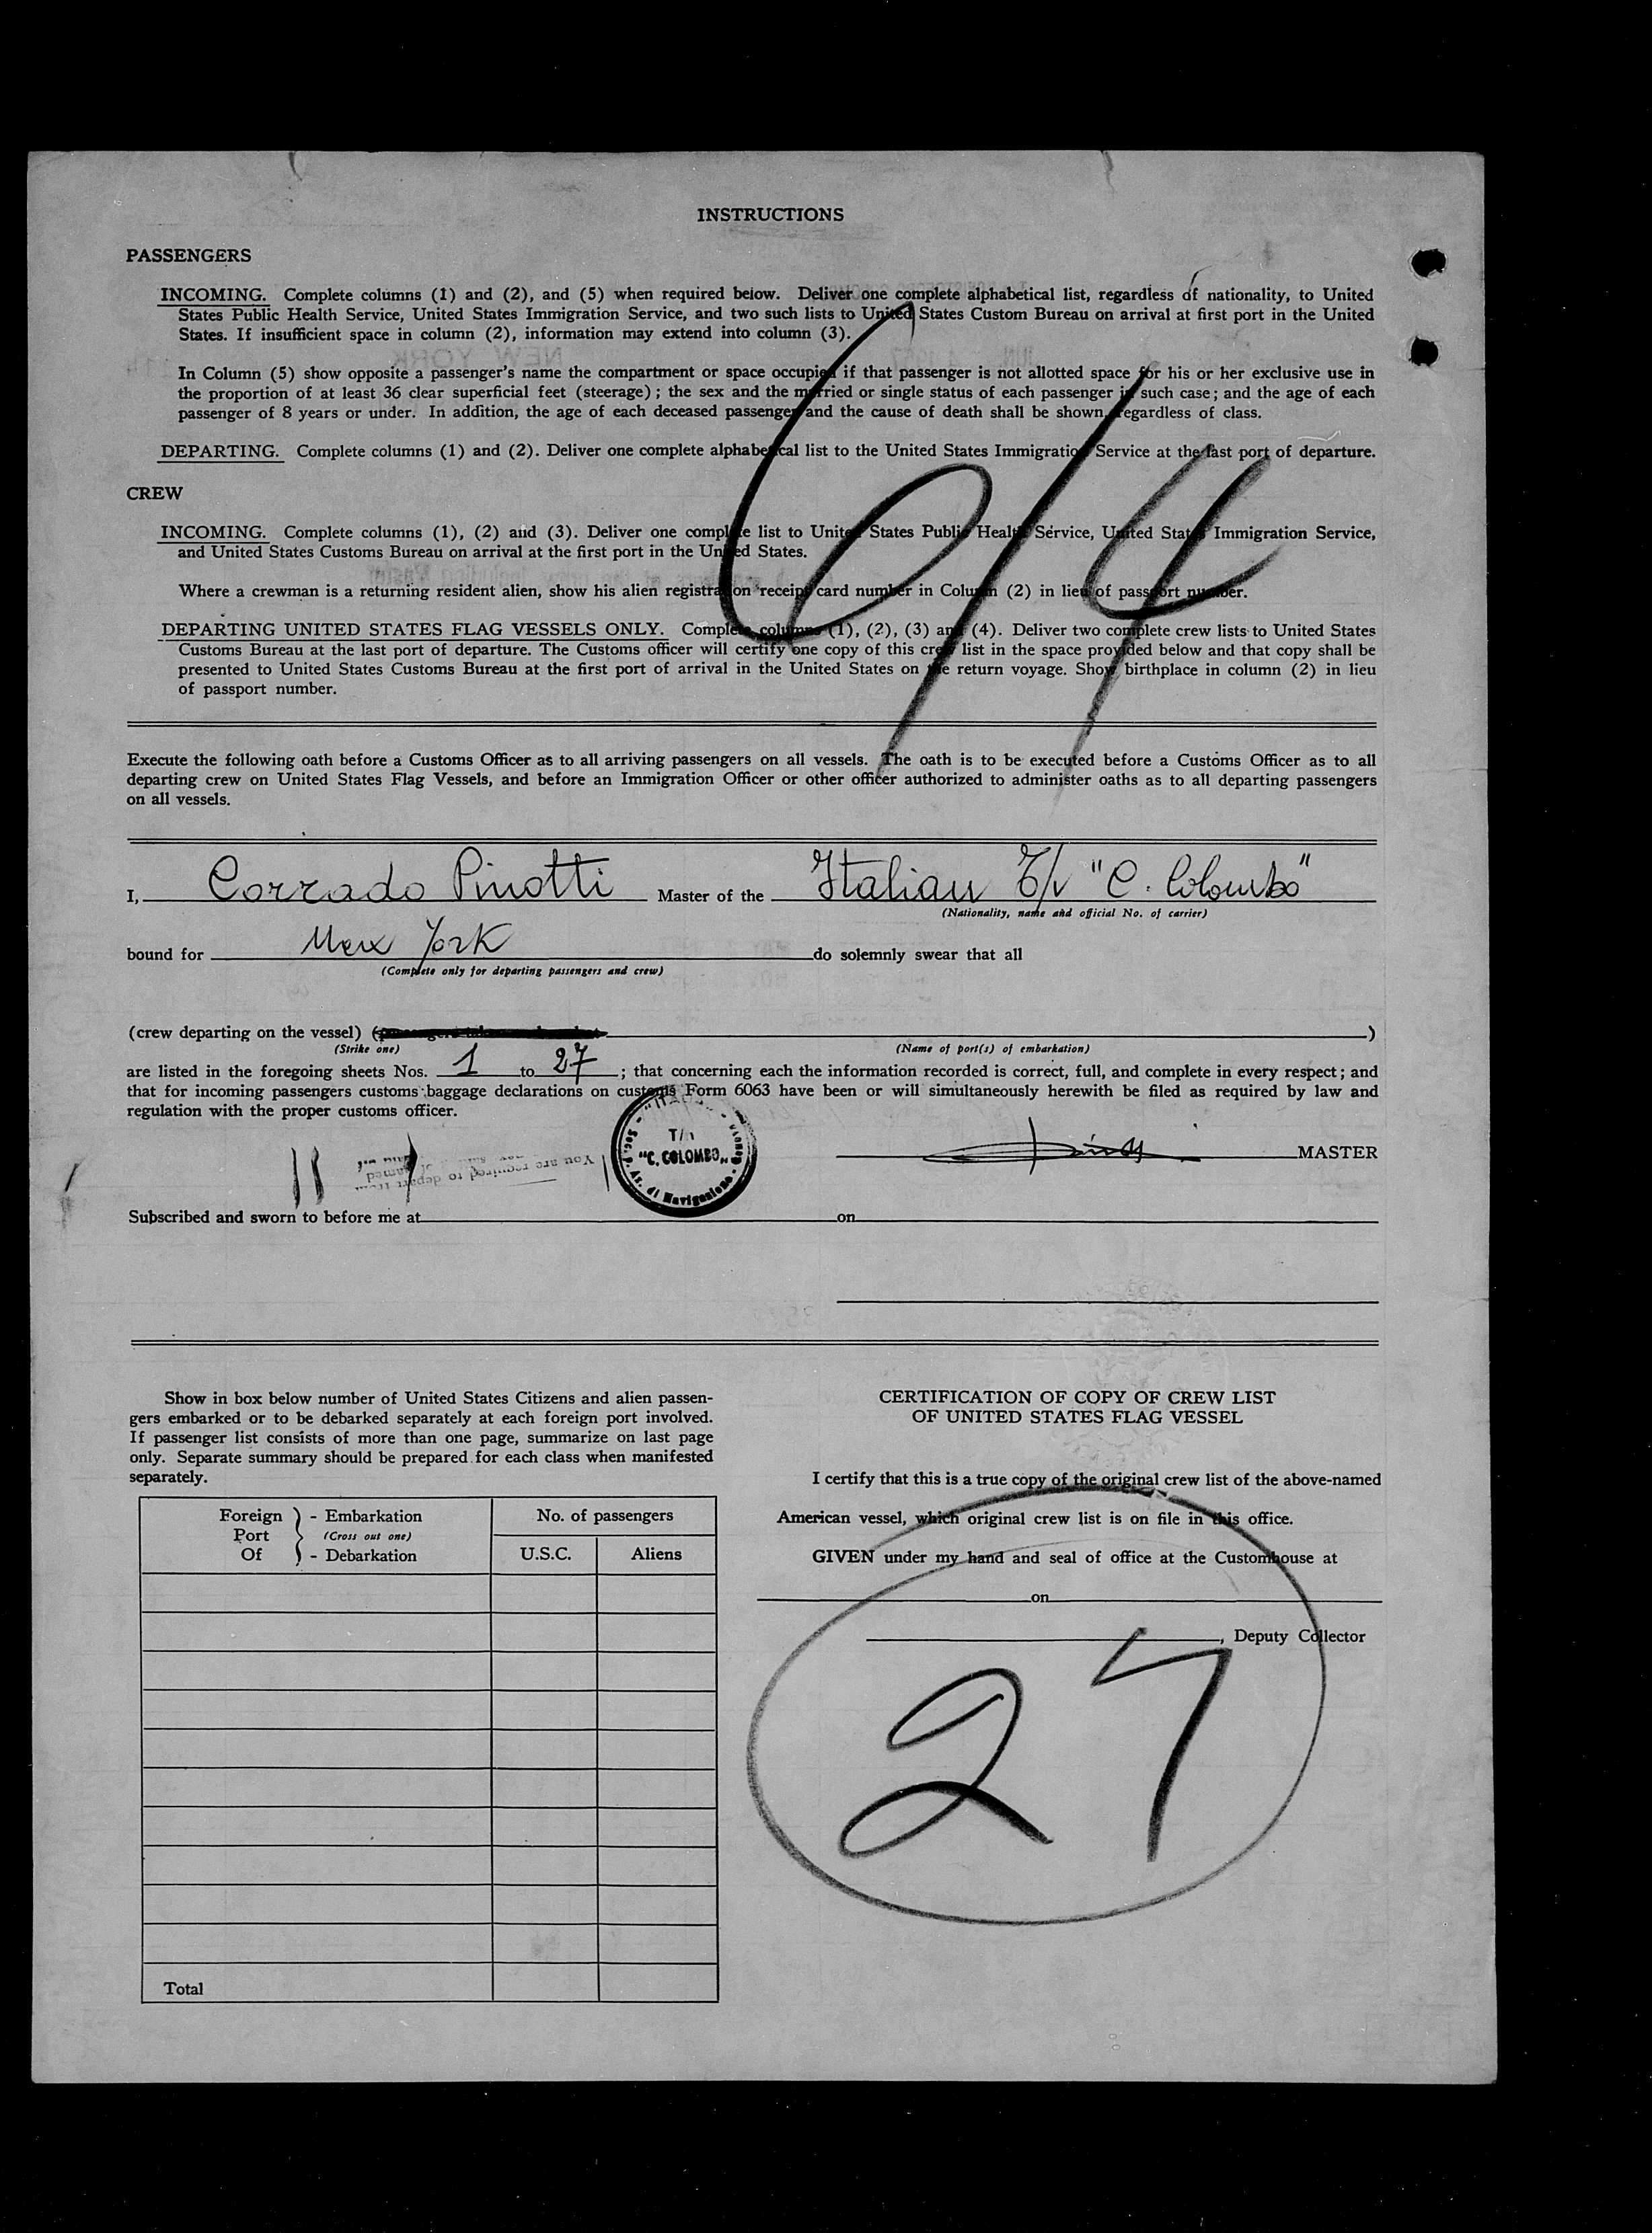 INSTRUCTIONS
PASSENGERS
INCOMING. Complete columns (1) and (2), and (5) when required below. Deliver one complete alphabetical list, regardless of nationality, to United
States Public Health Service, United States Immigration Service, and two such lists to United States Custom Bureau on arrival at first port in the United
States. If insufficient space in column (2), information may extend into column (3).
In Column (5) show opposite a passenger's name the compartment or space occupied if that passenger is not allotted space for his or her exclusive use in
the proportion of at least 36 clear superficial feet (steerage); the sex and the married or single status of each passenger in such case; and the age of each
passenger of 8 years or under. In addition, the age of each deceased passenger and the cause of death shall be shown, regardless of class.
DEPARTING. Complete columns (1) and (2). Deliver one complete alphabetical list to the United States Immigration Service at the last port of departure.
6/4
CREW
INCOMING. Complete columns (1), (2) and (3). Deliver one complete list to United States Public Health Service, United States Immigration Service,
and United States Customs Bureau on arrival at the first port in the United States.
Where a crewman is a returning resident alien, show his alien registration receipt card number in Column (2) in lieu of passport number.
DEPARTING UNITED STATES FLAG VESSELS ONLY. Complete columns (1), (2), (3) and (4). Deliver two complete crew lists to United States
Customs Bureau at the last port of departure. The Customs officer will certify one copy of this crew list in the space provided below and that copy shall be
presented to United States Customs Bureau at the first port of arrival in the United States on the return voyage. Show birthplace in column (2) in lieu
of passport number.
Execute the following oath before a Customs Officer as to all arriving passengers on all vessels. The oath is to be executed before a Customs Officer as to all
departing crew on United States Flag Vessels, and before an Immigration Officer or other officer authorized to administer oaths as to all departing passengers
on all vessels.
I, Corrado Pinotti Master of the Italian T/n "C. Colombo"
(Nationality, name and official No. of carrier)
bound for New York do solemnly swear that all
(Complete only for departing passengers and crew)
(crew departing on the vessel) ( )
(Strike one) (Name of port(s) of embarkation)
are listed in the foregoing sheets Nos. 1 to 27; that concerning each the information recorded is correct, full, and complete in every respect; and
that for incoming passengers customs baggage declarations on customs Form 6063 have been or will simultaneously herewith be filed as required by law and
regulation with the proper customs officer.
"ITALIA" Soc. p. Az. di Navigazione - Genova
T/n
"C. COLOMBO"
You are required to depart from
MASTER
Subscribed and sworn to before me at on
Show in box below number of United States Citizens and alien passen-
gers embarked or to be debarked separately at each foreign port involved.
If passenger list consists of more than one page, summarize on last page
only. Separate summary should be prepared for each class when manifested
separately.
Foreign Port Of } - Embarkation (Cross out one) - Debarkation
No. of passengers
U.S.C. Aliens
Total
CERTIFICATION OF COPY OF CREW LIST
OF UNITED STATES FLAG VESSEL
I certify that this is a true copy of the original crew list of the above-named
American vessel, which original crew list is on file in this office.
GIVEN under my hand and seal of office at the Customhouse at
on
, Deputy Collector
27